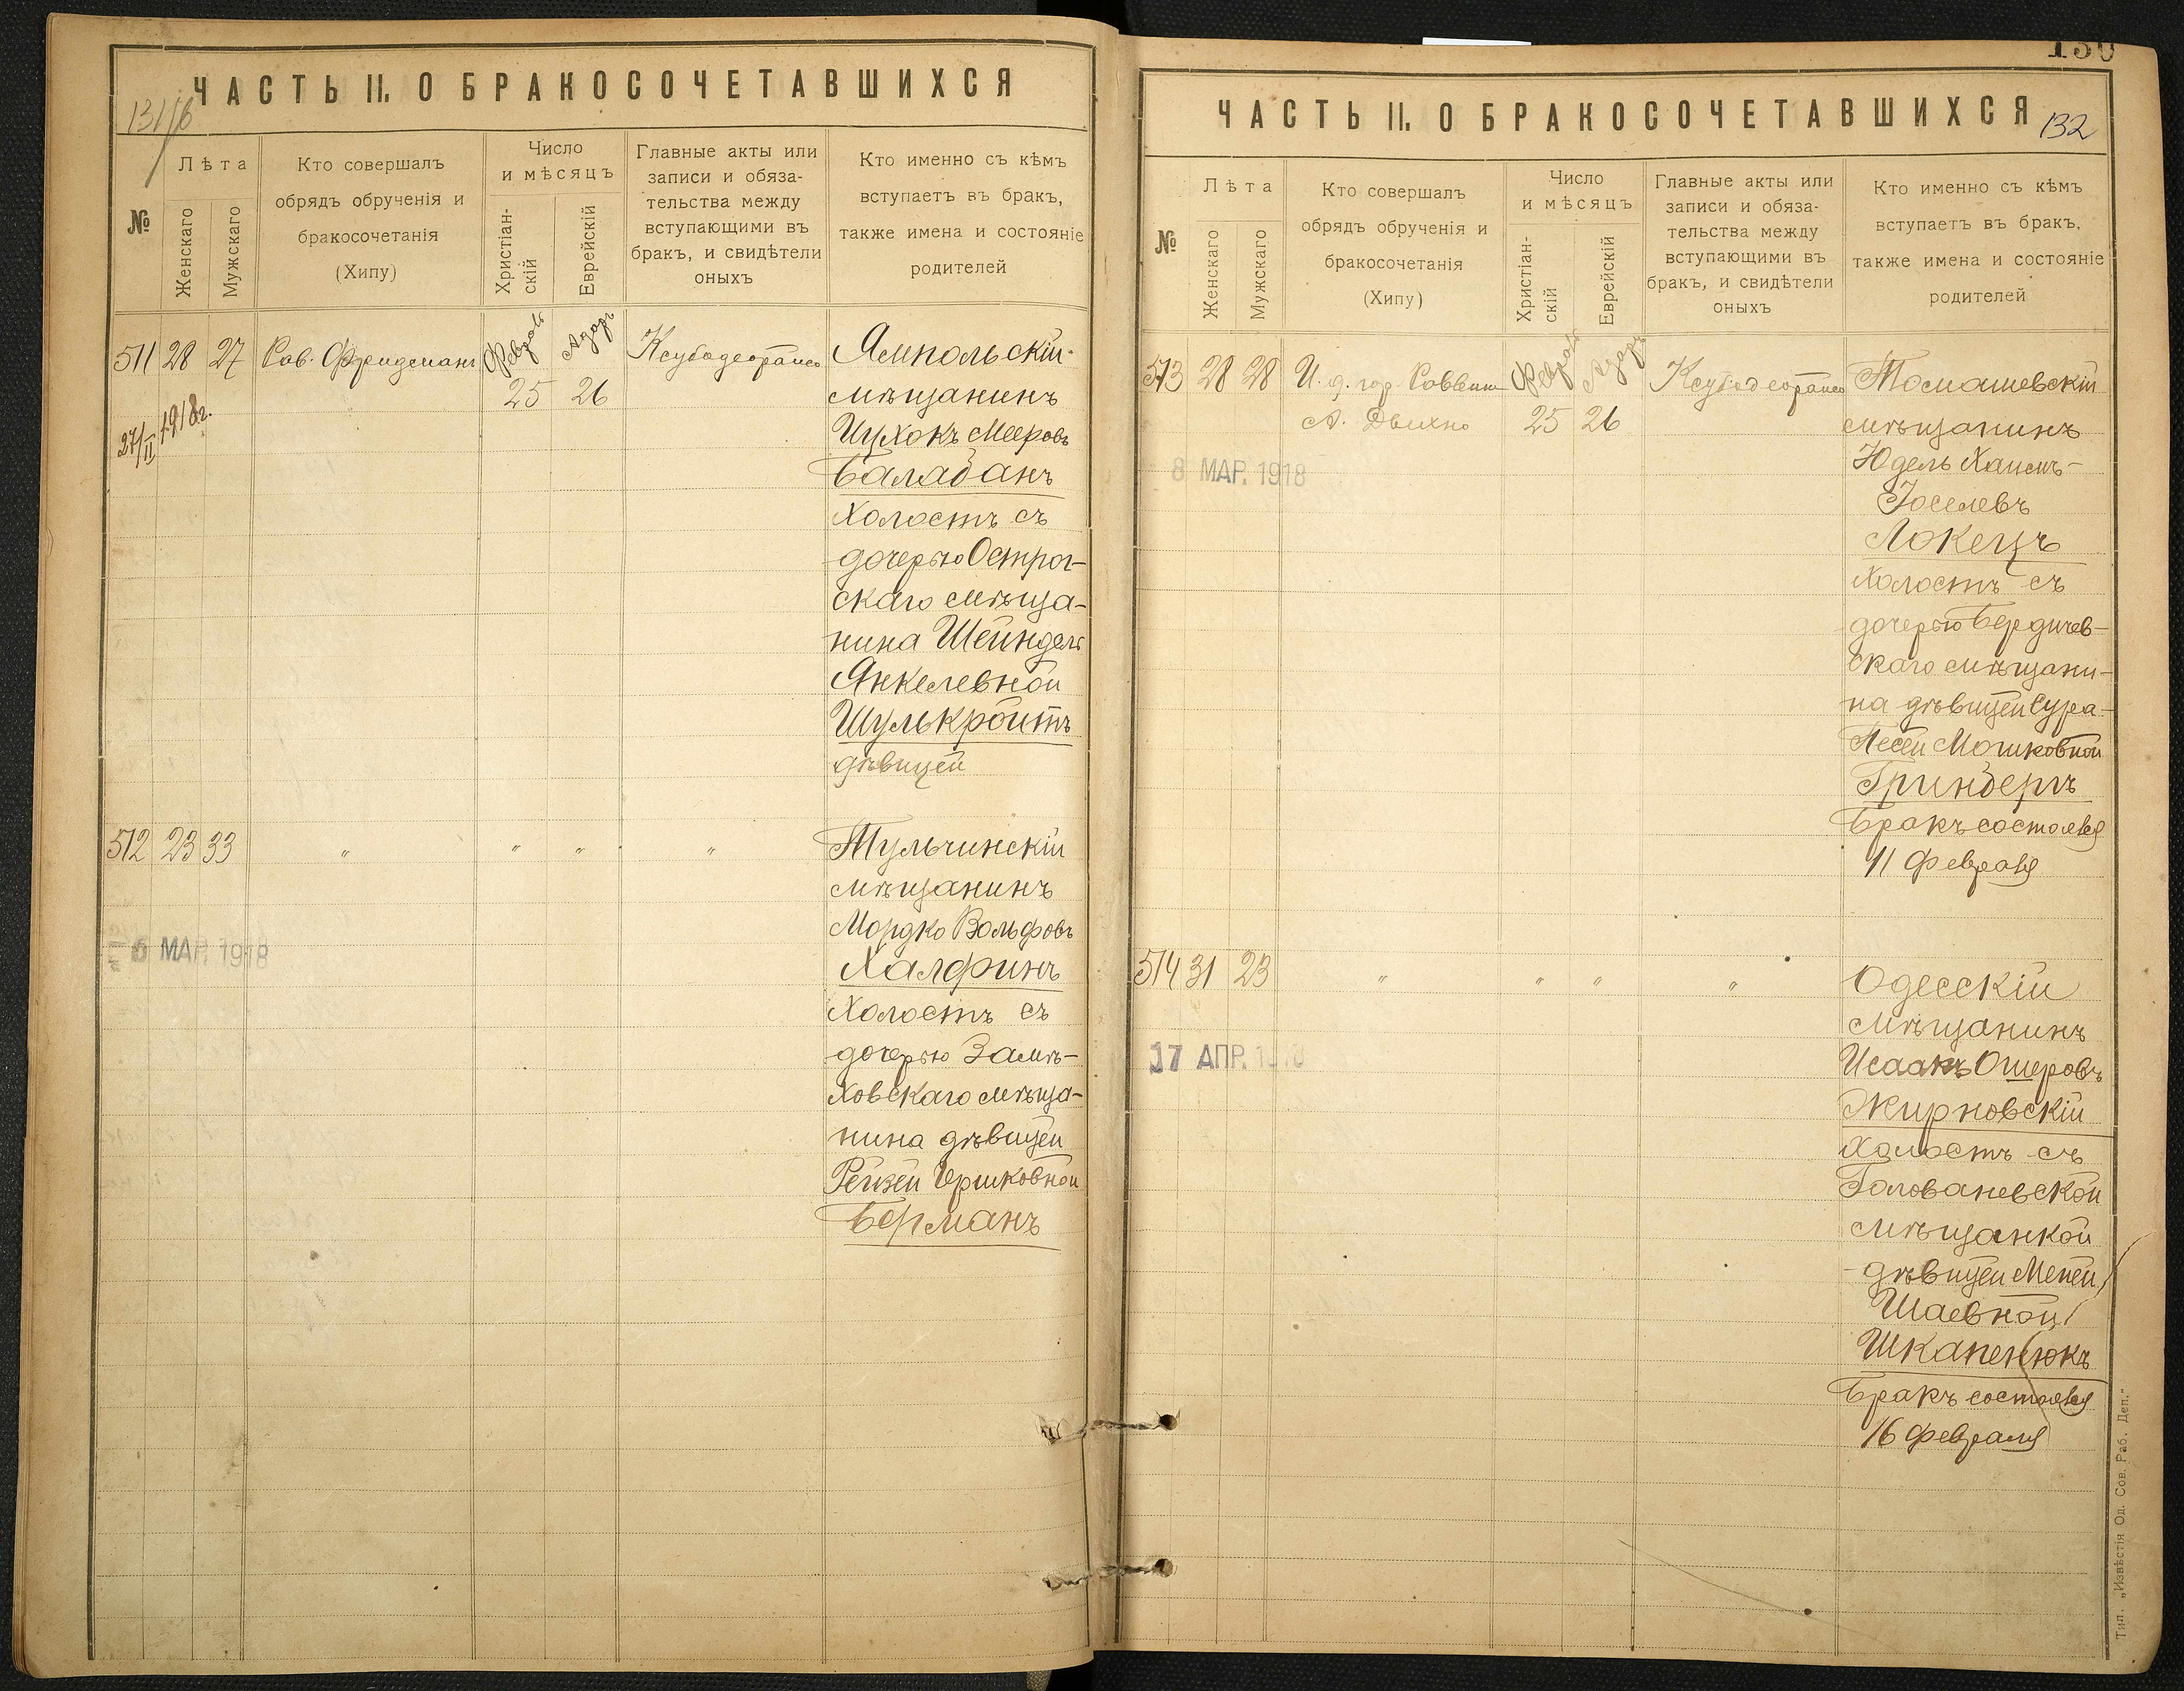 ЧАСТЬ II. О БРАКОСОЧЕТАВШИХСЯ
131/б
№
Лѣта
Женскаго
Мужскаго
Кто совершалъ
обрядъ обрученія и
бракосочетанія
(Хипу)
Число
и мѣсяцъ
Христіан-
скій
Еврейскій
Главные акты или
записи и обяза-
тельства между
вступающими въ
бракъ, и свидѣтели
оныхъ
Кто именно съ кѣмъ
вступаетъ въ бракъ,
также имена и состояніе
родителей
511 28 27 Рав. Фридеманъ Февраль Адаръ Ямпольскій
25 26 мѣщанинъ
27/II 1918г.
Ицхокъ Мееровъ
Балабанъ
холостъ съ
дочерью Острог-
скаго мѣща-
нина Шейндель
Янкелевной
Шулькройтъ
дѣвицей
512 23 33 " " " " Тульчинскій
мѣщанинъ
Мордко Вольфовъ
6 МАР. 1918
Халфинъ
Холостъ съ
дочерью Замѣ-
ховскаго мѣща-
нина дѣвицей
Рейзей Гершковной
Берманъ
130
ЧАСТЬ II. О БРАКОСОЧЕТАВШИХСЯ
132
№
Лѣта
Женскаго
Мужскаго
Кто совершалъ
обрядъ обрученія и
бракосочетанія
(Хипу)
Число
и мѣсяцъ
Христіан-
скій
Еврейскій
Главные акты или
записи и обяза-
тельства между
вступающими въ
бракъ, и свидѣтели
оныхъ
Кто именно съ кѣмъ
вступаетъ въ бракъ,
также имена и состояніе
родителей
513 28 28 И. д. гор. Раввина Февраль Адаръ Томашевскій
25 26 мѣщанинъ
8 МАР. 1918
Юдель Хаимъ-
Іоселевъ
Локецъ
холостъ съ
дочерью Бердичев-
скаго мѣщани-
на дѣвицей Сура-
Песей Мошковной
Гринбергъ
Бракъ состоялся
11 февраля
514 31 23 " " " " Одесскій
мѣщанинъ
17 АПР. 1918
Исаакъ Ошеровъ
Жирновскій
Холостъ съ
Голованевской
мѣщанкой
дѣвицей Меней
Шаевной
Шкапенюкъ
Бракъ состоялся
16 февраля
Тип. „Извѣстія Од. Сов. Раб. Деп."